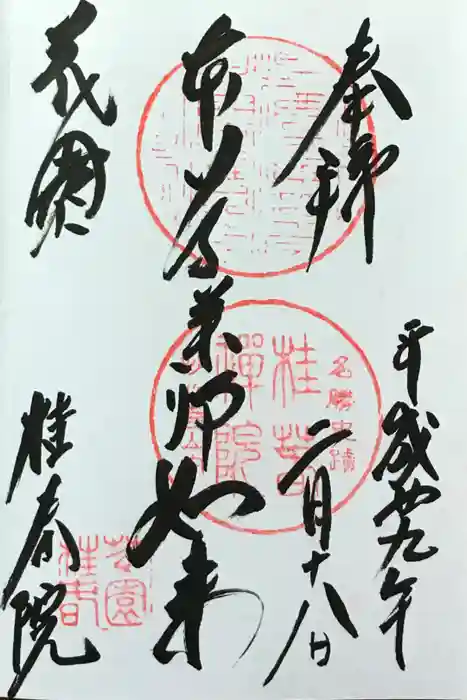 奉拝
平成廿九年
二月十八日
本尊薬師如来
花園
桂春院
名勝史蹟
桂春
禪院
花園
桂春